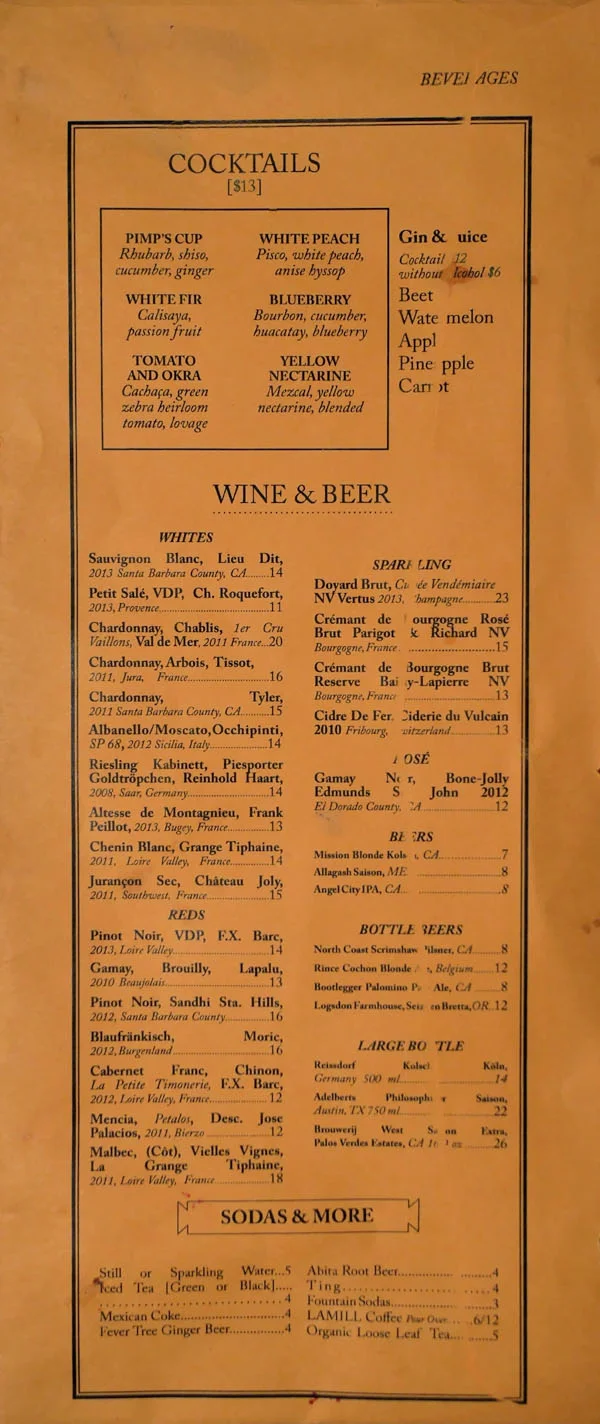 BEVE AGES
COCKTAILS
[$13]
PIMP'S CUP
Rhubarb, shiso,
cucumber, ginger
WHITE FIR
Calisaya,
passion fruit
TOMATO
AND OKRA
Cachaça, green
zebra heirloom
tomato, lovage
WHITE PEACH
Pisco, white peach,
anise hyssop
BLUEBERRY
Bourbon, cucumber,
huacatay, blueberry
YELLOW
NECTARINE
Mezcal, yellow
nectarine, blended
Gin & uice
Cocktail 12
without lcohol $6
Beet
Wate melon
Appl
Pine pple
Car ot
WINE & BEER
WHITES
Sauvignon Blanc, Lieu Dit,
2013 Santa Barbara County, CA........14
Petit Salé, VDP, Ch. Roquefort,
2013, Provence........11
Chardonnay, Chablis, 1er Cru
Vaillons, Val de Mer, 2011 France...20
Chardonnay, Arbois, Tissot,
2011, Jura, France........16
Chardonnay, Tyler,
2011 Santa Barbara County, CA........15
Albanello/Moscato, Occhipinti,
SP 68, 2012 Sicilia, Italy........14
Riesling Kabinett, Piesporter
Goldtröpchen, Reinhold Haart,
2008, Saar, Germany........14
Altesse de Montagnieu, Frank
Peillot, 2013, Bugey, France........13
Chenin Blanc, Grange Tiphaine,
2011, Loire Valley, France........14
Jurançon Sec, Château Joly,
2011, Southwest, France........15
REDS
Pinot Noir, VDP, F.X. Barc,
2013, Loire Valley........14
Gamay, Brouilly, Lapalu,
2010 Beaujolais........13
Pinot Noir, Sandhi Sta. Hills,
2012, Santa Barbara County........16
Blaufränkisch, Moric,
2012, Burgenland........16
Cabernet Franc, Chinon,
La Petite Timonerie, F.X. Barc,
2012, Loire Valley, France........12
Mencia, Petalos, Desc. Jose
Palacios, 2011, Bierzo........12
Malbec, (Côt), Vielles Vignes,
La Grange Tiphaine,
2011, Loire Valley, France........18
SPAR LING
Doyard Brut, Cu ée Vendémiaire
NV Vertus 2013, hampagne........23
Crémant de ourgogne Rosé
Brut Parigot & Richard NV
Bourgogne, France........15
Crémant de Bourgogne Brut
Reserve Bai y-Lapierre NV
Bourgogne, France........13
Cidre De Fer, Ciderie du Vulcain
2010 Fribourg, witzerland........13
OSÉ
Gamay N r, Bone-Jolly
Edmunds S John 2012
El Dorado County, CA........12
BE ERS
Mission Blonde Kols , CA........7
Allagash Saison, ME........8
Angel City IPA, CA........8
BOTTLE BEERS
North Coast Scrimshaw Pilsner, CA........8
Rince Cochon Blonde , Belgium........12
Bootlegger Palomino P Ale, CA........8
Logsdon Farmhouse, Seiz en Bretta, OR .12
LARGE BO TLE
Reissdorf Kolsc Köln,
Germany 500 ml........14
Adelberts Philosoph r Saison,
Austin, TX 750 ml........22
Brouwerij West S on Extra,
Palos Verdes Estates, CA oz........26
SODAS & MORE
Still or Sparkling Water...5
Iced Tea [Green or Black].....
........4
Mexican Coke........4
Fever Tree Ginger Beer........4
Abita Root Beer........4
Ting........4
Fountain Sodas........3
LAMILL Coffee Pour Over........6/12
Organic Loose Leaf Tea........5